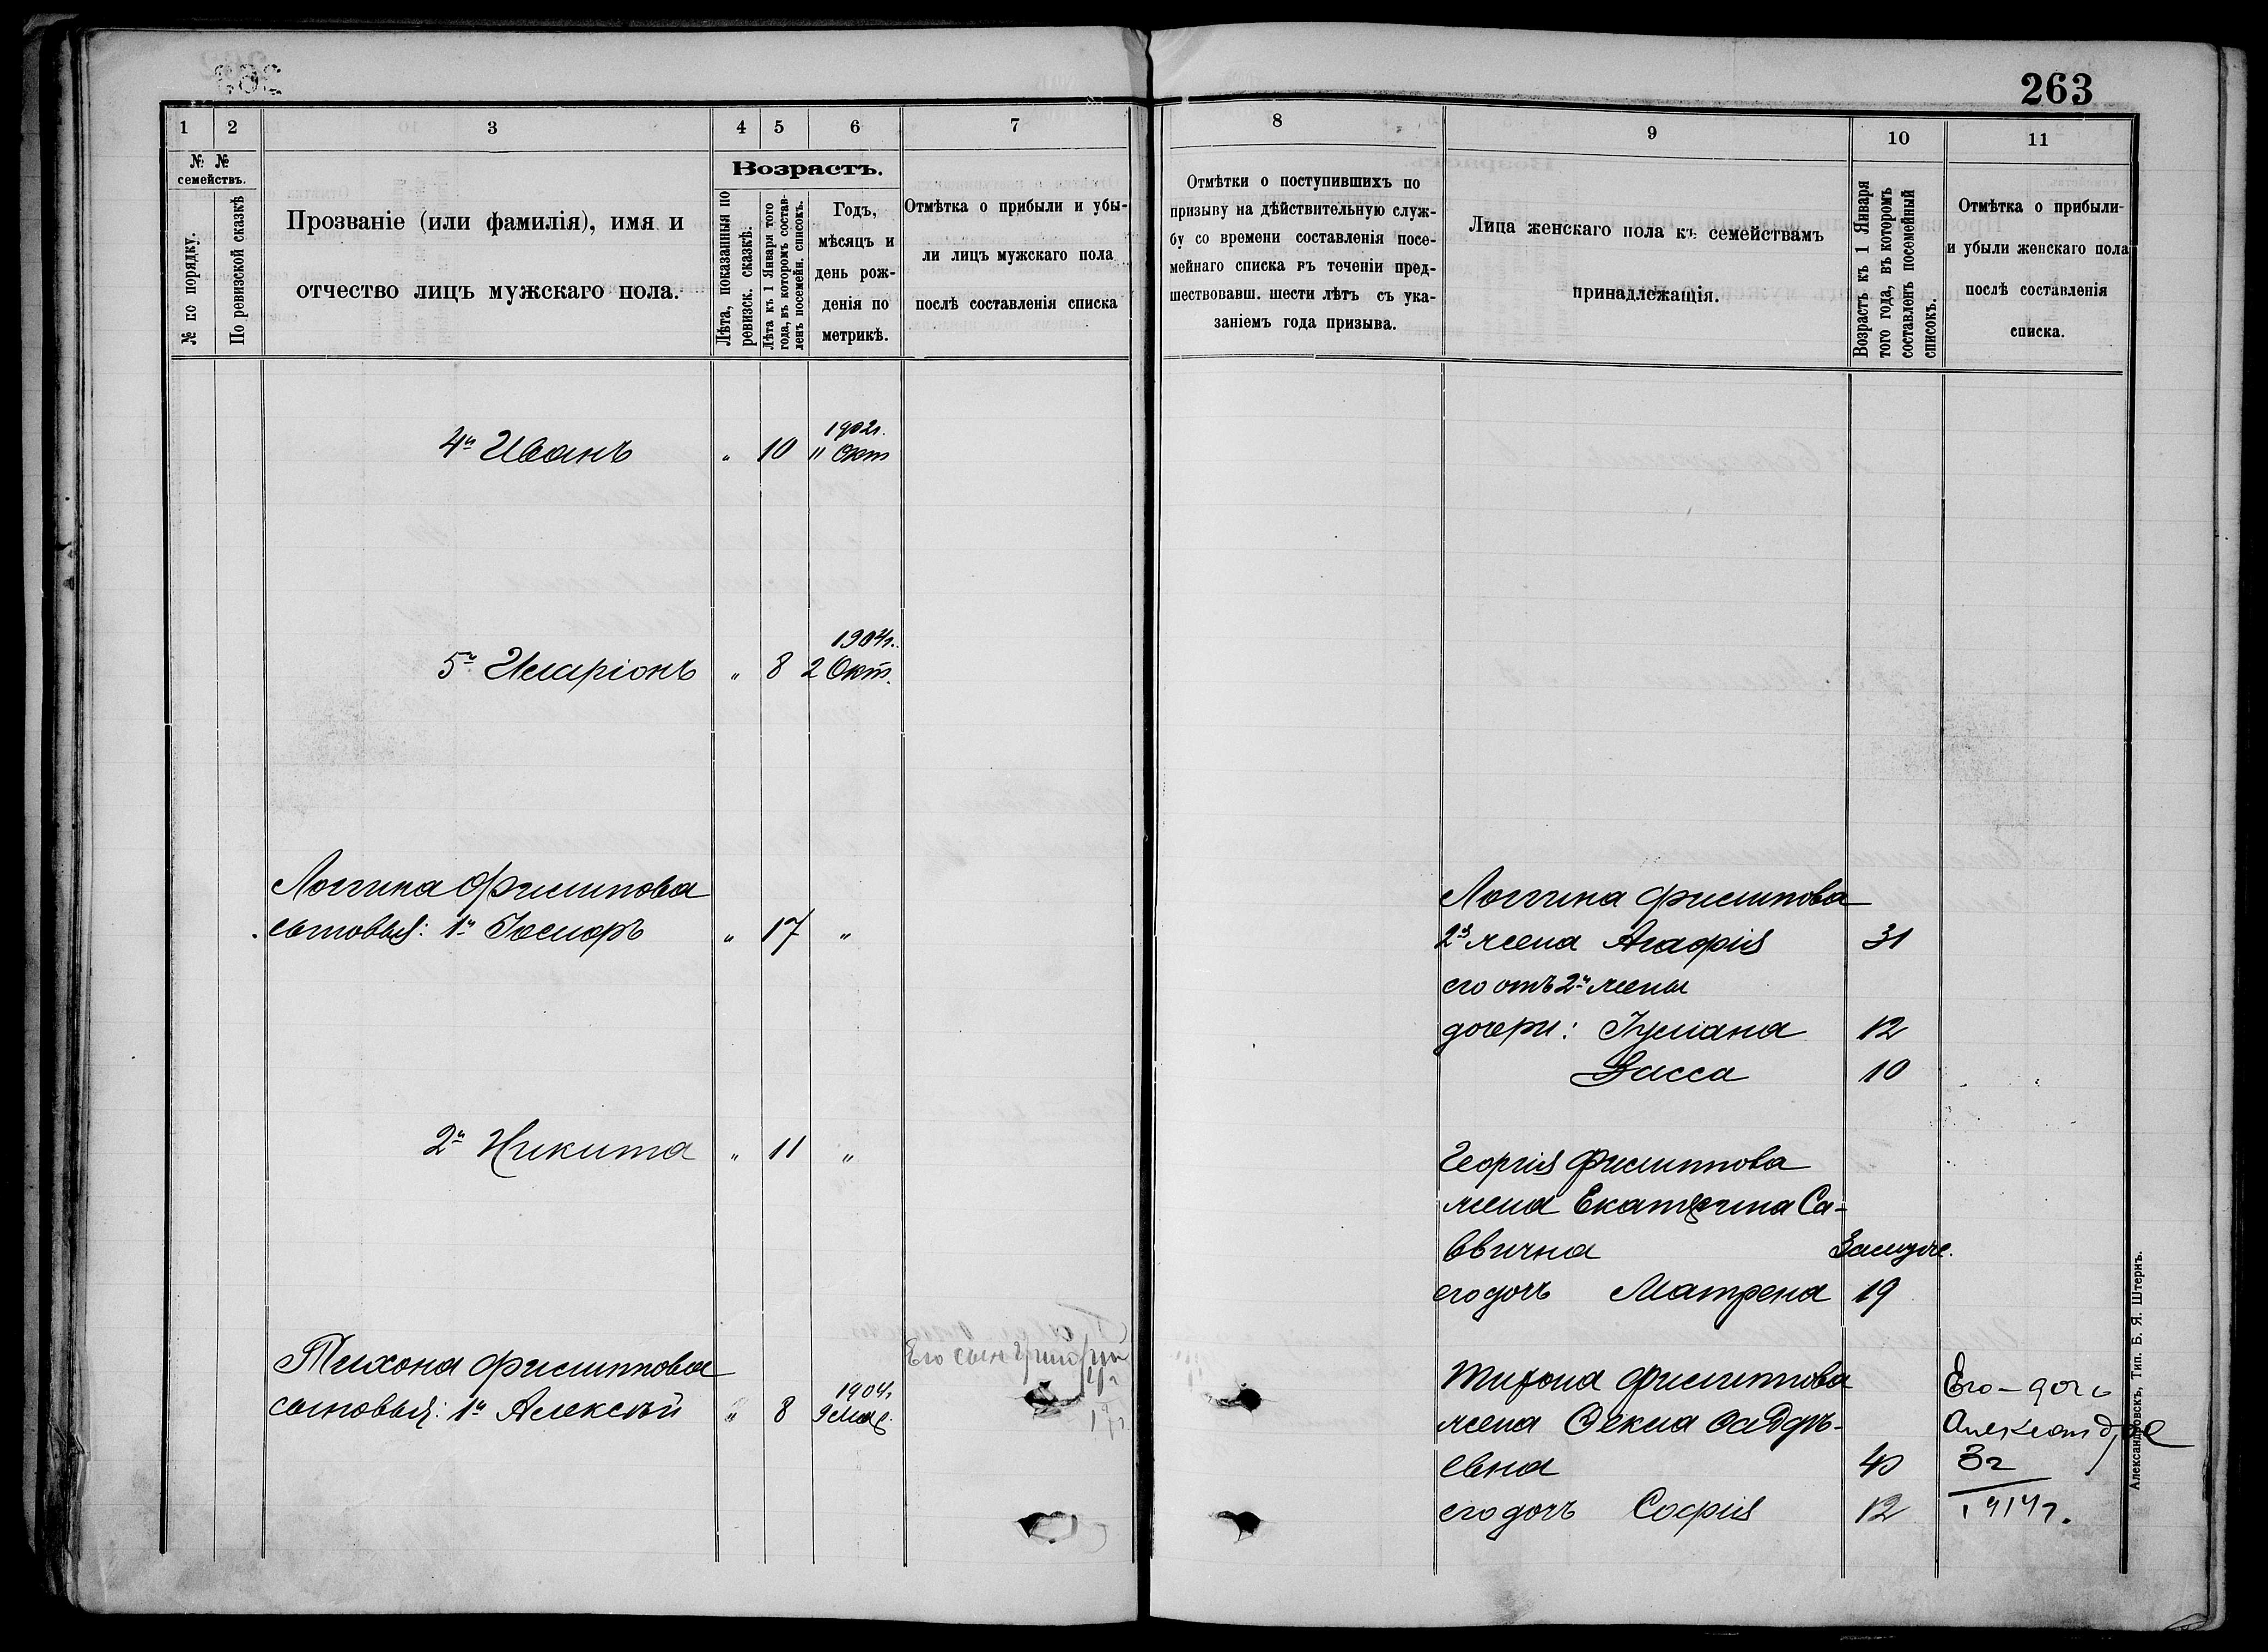 263
1
2
3
4
5
6
7
№ №
семействъ.
№ по порядку.
По ревизской сказкѣ
Прозваніе (или фамилія), имя и
отчество лицъ мужскаго пола.
Возрастъ.
Лѣта, показанныя по
ревизск. сказкѣ.
Лѣта къ 1 Января того
года, въ которомъ состав-
ленъ посемейн. списокъ.
Годъ,
мѣсяцъ и
день рож-
денія по
метрикѣ.
Отмѣтка о прибыли и убы-
ли лицъ мужскаго пола
послѣ составленія списка
4й Иванъ " 10 1902г.
" Окт
5й Иларіонъ " 8 1904г.
2 Окт.
Логгина Филипова
сыновья: 1й " 17 "
2й Никита " 11 "
Тихона Филиппова
сыновья: 1й Алексѣй " 8 1904г.
Его сын Григорий
8
9
10
11
Отмѣтки о поступившихъ по
призыву на дѣйствительную служ-
бу со времени составленія посе-
мейнаго списка въ теченіи пред-
шествовавш. шести лѣтъ съ ука-
заніемъ года призыва.
Лица женскаго пола къ семействамъ
принадлежащія.
Возрастъ къ 1 Января
того года, въ которомъ
составленъ посемейный
списокъ.
Отмѣтка о прибыли-
и убыли женскаго пола
послѣ составленія
списка.
Логгина Филипова
2я жена Агафія 31
его отъ 2й жены
дочери: Іуліана 12
Васса 10
Георгія Филиппова
жена Екатерина Са-
ввична Замуж.
его дочь Матрена 19
Тихона Филиппова
жена Фекла
евна 40
его дочь Софія 12
Его - доч
Александра
3г
1914г.
Александровскъ, Тип. Б. Я. Штернъ.